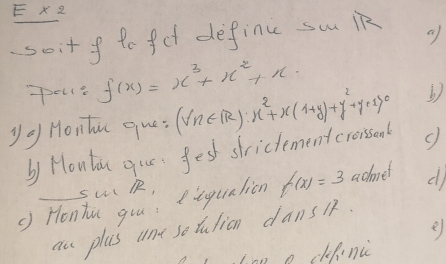 Ex2
soit f la fct définie sur ℝ
par: f(x) = x³ + x² + x.
1) a) Montrer que: (∀x∈ℝ): x² + x(1+y) + y² + y + 1 > 0
b) Montrer que: f est strictement croissante
sur ℝ.
c) Montrer que: l'équation f(x) = 3 admet
au plus une solution dans ℝ.
définie
a)
b)
c)
d)
e)